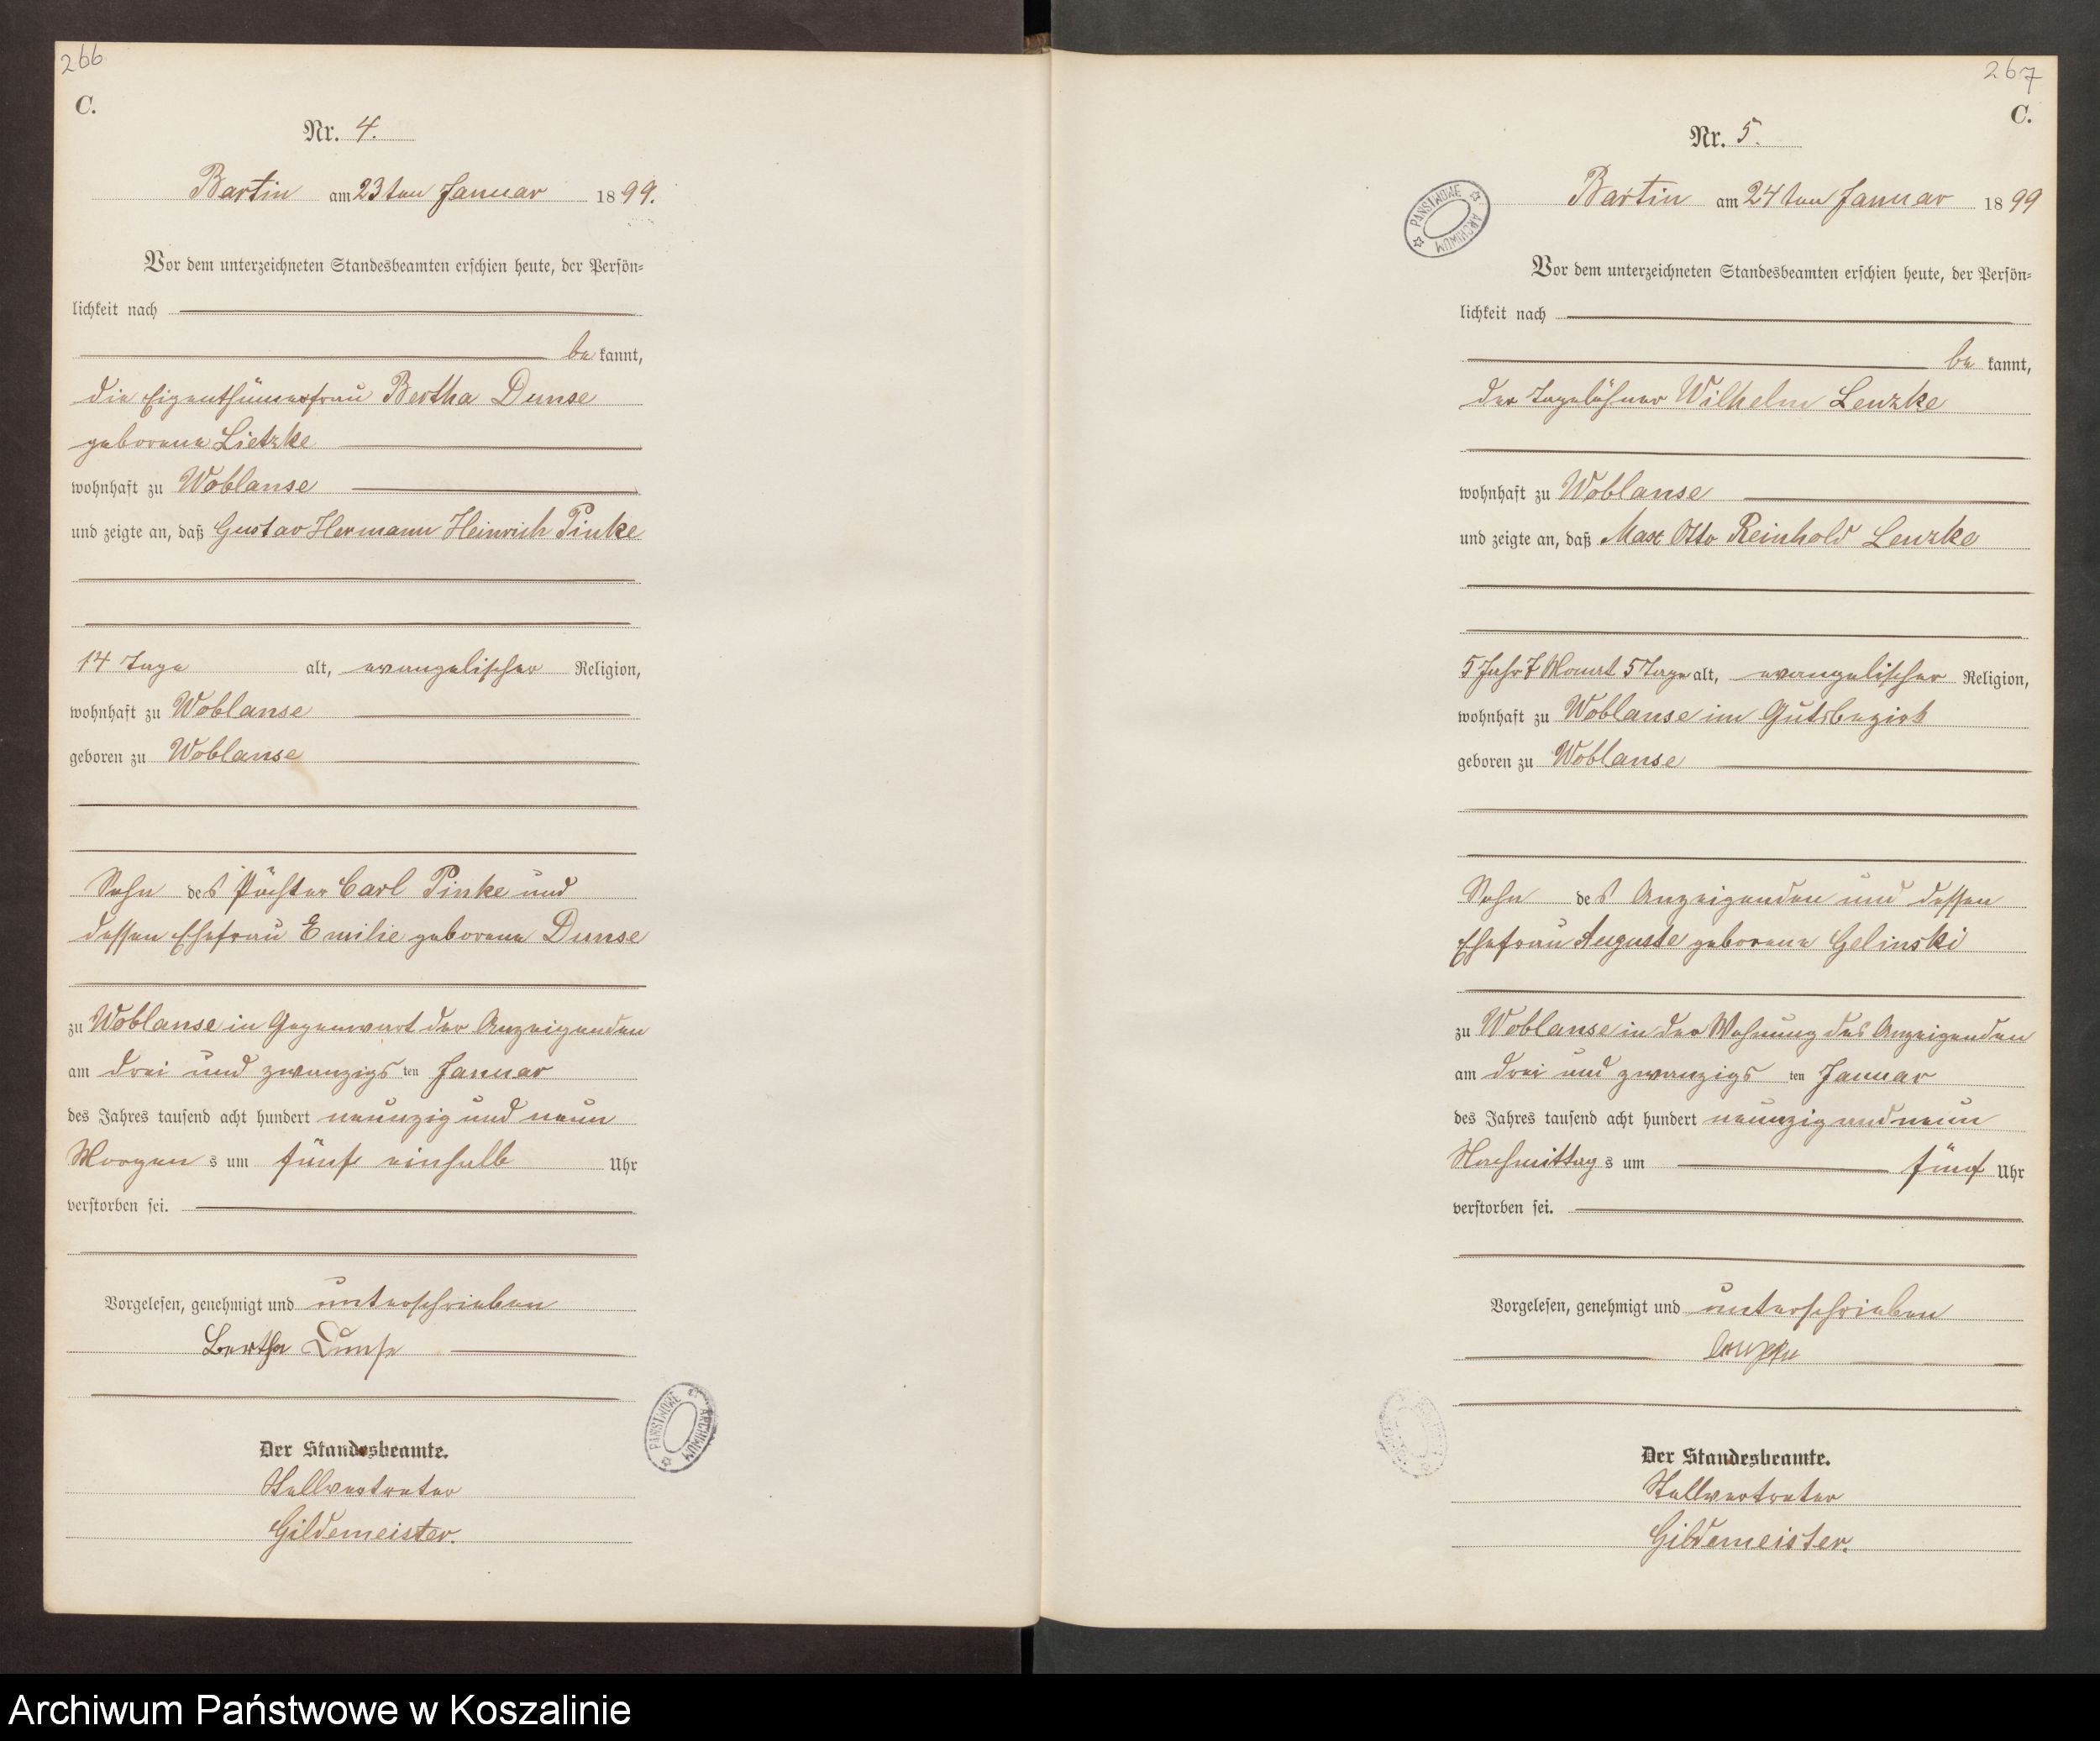 266
C.
Nr. 4.
Bartin am 23ten Januar 1899.
Vor dem unterzeichneten Standesbeamten erschien heute, der Persön=
lichkeit nach
be kannt,
die Eigenthümerfrau Bertha Dunse
geborene Lietzke
wohnhaft zu Woblanse
und zeigte an, daß Gustav Hermann Heinrich Pinke
14 Tage alt, evangelischer Religion,
wohnhaft zu Woblanse
geboren zu Woblanse
Sohn des Pächter Carl Pinke und
dessen Ehefrau Emilie geborene Dunse
zu Woblanse in Gegenwart der Anzeigenden
am drei und zwanzigs ten Januar
des Jahres tausend acht hundert neunzig und neun
Morgen s um fünf einhalb Uhr
verstorben sei.
Vorgelesen, genehmigt und unterschrieben
Bertha Dunse
Der Standesbeamte.
Stellvertreter
Gildemeister.
PAŃSTWOWE ARCHIWUM
267
C.
Nr. 5.
Bartin am 24ten Januar 1899
PAŃSTWOWE ARCHIWUM
Vor dem unterzeichneten Standesbeamten erschien heute, der Persön=
lichkeit nach
be kannt,
der Tagelöhner Wilhelm Lenzke
wohnhaft zu Woblanse
und zeigte an, daß Max Otto Reinhold Lenzke
5 Jahr 7 Monat 5 Tage alt, evangelischer Religion,
wohnhaft zu Woblanse im Gutsbezirk
geboren zu Woblanse
Sohn des Anzeigenden und dessen
Ehefrau Auguste geborene Gelinski
zu Woblanse in der Wohnung des Anzeigenden
am drei und zwanzigs ten Januar
des Jahres tausend acht hundert neunzig und neun
Nachmittag s um fünf Uhr
verstorben sei.
Vorgelesen, genehmigt und unterschrieben
Lenzke
Der Standesbeamte.
Stellvertreter
Gildemeister.
Archiwum Państwowe w Koszalinie